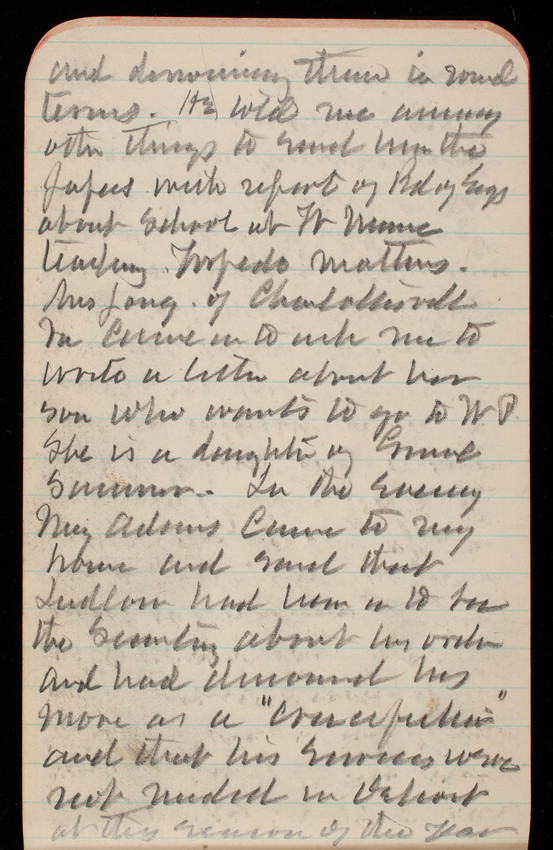 and denouncing them in round
terms. He told me among
other things to send him the
papers with report of Bd of Engs
about School at W
teaching Torpedo matters.
Mrs Long of Charlottesville
Va came in to ask me to
write a letter about her
son who wants to go to W P.
She is a daughter of Genrl
Sumner. In the evening
Maj Adams came to my
house and said that
Ludlow had been in to see
the Secretary about his order
and had denounced his
move as a "
and that his services were
not needed in Detroit
at this season of the year